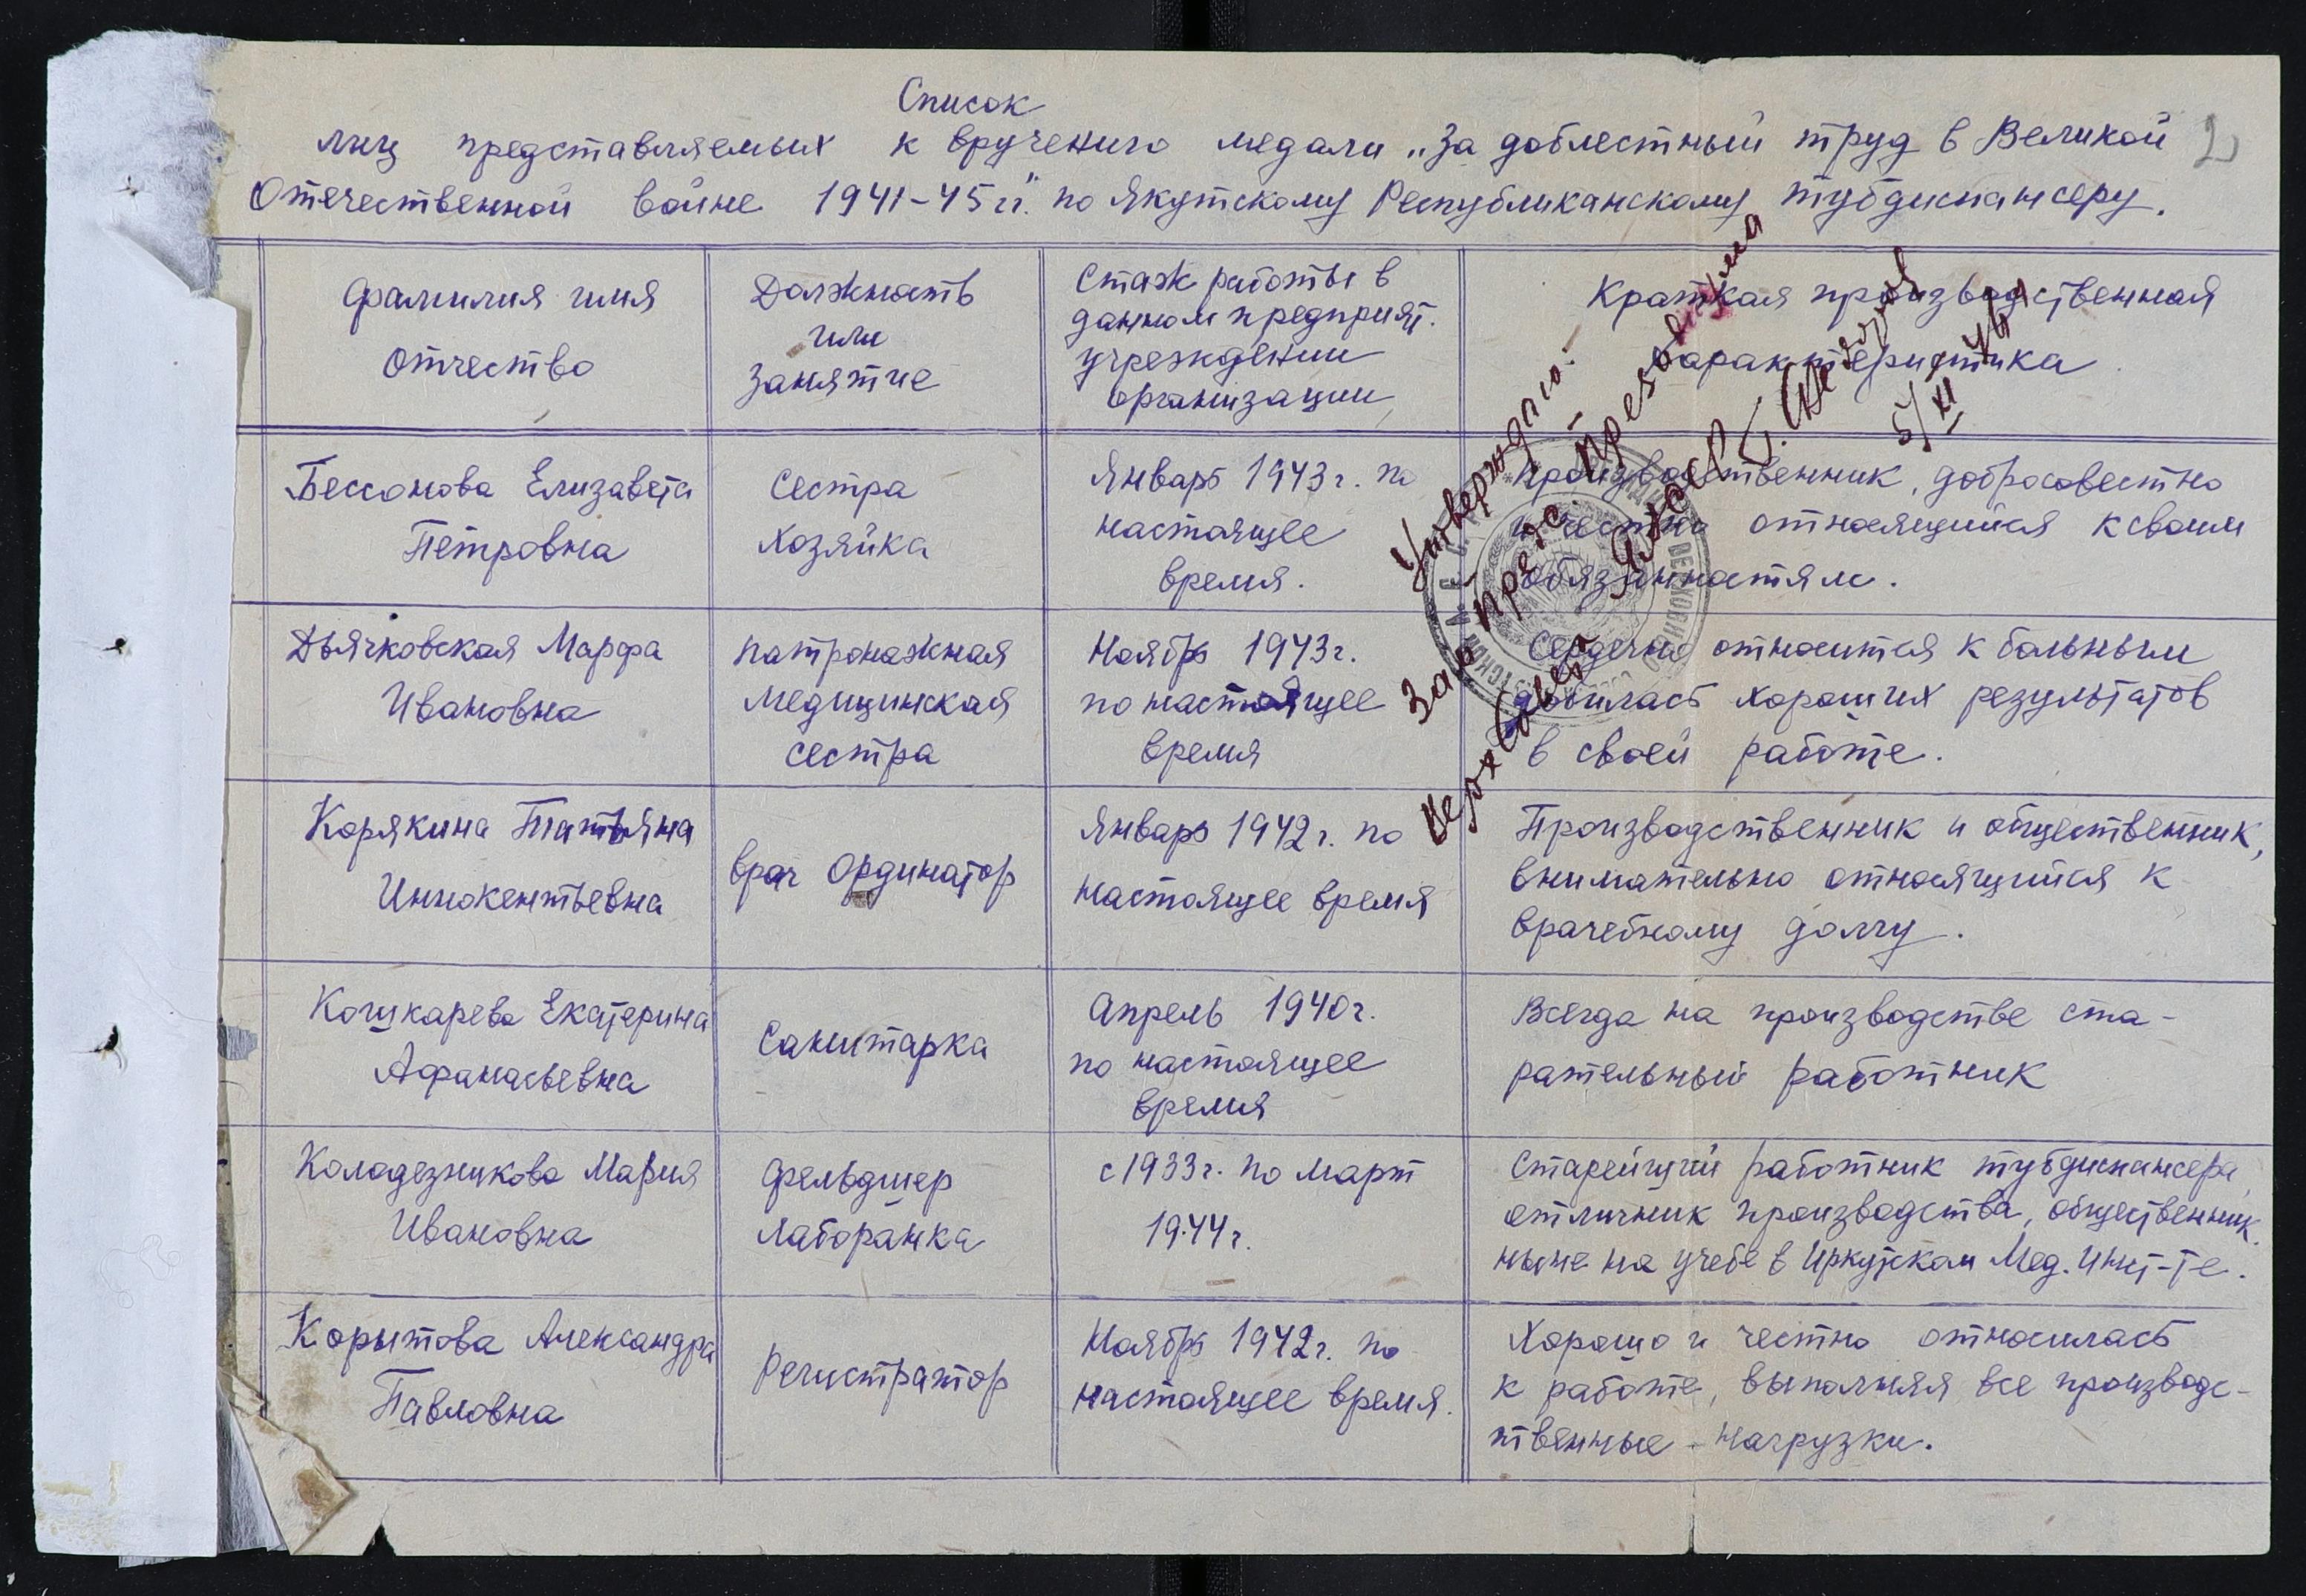 Список
лиц представляемых к вручению медали „За доблестный труд в Великой
Отечественной войне 1941-45 г.г." по Якутскому Республиканскому тубдиспансеру.
2
Фамилия имя
Отчество
Должность
или
занятие
Стаж работы в
данном предприят.
учреждении
организации
Краткая производственная
характеристика
Утверждаю:
Зам. Пред. Президиума
Верх Совета ЯАССР
5/XI
Бессонова Елизавета
Петровна
Сестра
Хозяйка
Январь 1943 г. по
настоящее
время.
Производственник, добросовестно
и честно относящийся к своим
обязанностям.
Дьячковская Марфа
Ивановна
патронажная
медицинская
сестра
Ноябрь 1943 г.
по настоящее
время
Сердечно относится к больным
добилась хороших результатов
в своей работе.
Корякина Татьяна
Иннокентьевна
врач Ординатор
Январь 1942 г. по
настоящее время
Производственник и общественник,
внимательно относящийся к
врачебному долгу.
Кошкарева Екатерина
Афанасьевна
Санитарка
Апрель 1940 г.
по настоящее
время
Всегда на производстве ста-
рательный работник
Колодезникова Мария
Ивановна
Фельдшер
лаборанка
с 1933 г. по март
1944 г.
Старейший работник тубдиспансера,
отличник производства, общественник.
ныне на учебе в Иркутском Мед. Инст-те.
Корытова Александра
Павловна
Регистратор
Ноябрь 1942 г. по
настоящее время.
Хорошо и честно относилась
к работе, выполняя все производс-
твенные нагрузки.